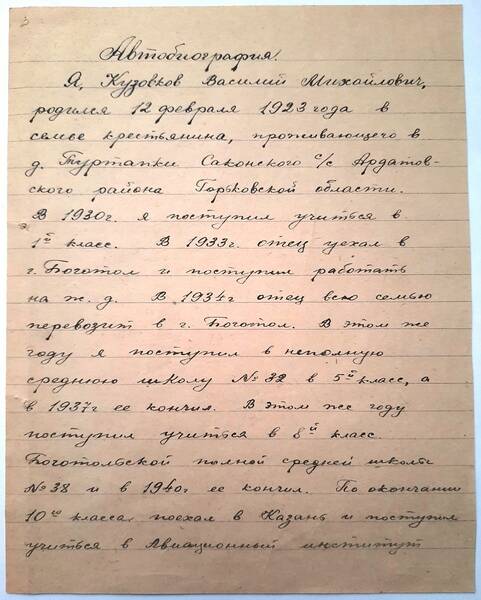 3
Автобиография.
Я, Кузовков Василий Михайлович,
родился 12 февраля 1923 года в
семье крестьянина, проживающего в
д. Туртапки Саконского с/с Ардатов-
ского района Горьковской области.
В 1930г. я поступил учиться в
1й класс. В 1933г. отец уехал в
г. Боготол и поступил работать
на ж. д. В 1934г отец всю семью
перевозит в г. Боготол. В этом же
году я поступил в неполную
среднюю школу № 32 в 5й класс, а
в 1937г ее кончил. В этом же году
поступил учиться в 8й класс.
Боготольской полной средней школы
№ 38 и в 1940г ее кончил. По окончании
10го класса, поехал в Казань и поступил
учиться в Авиационный институт